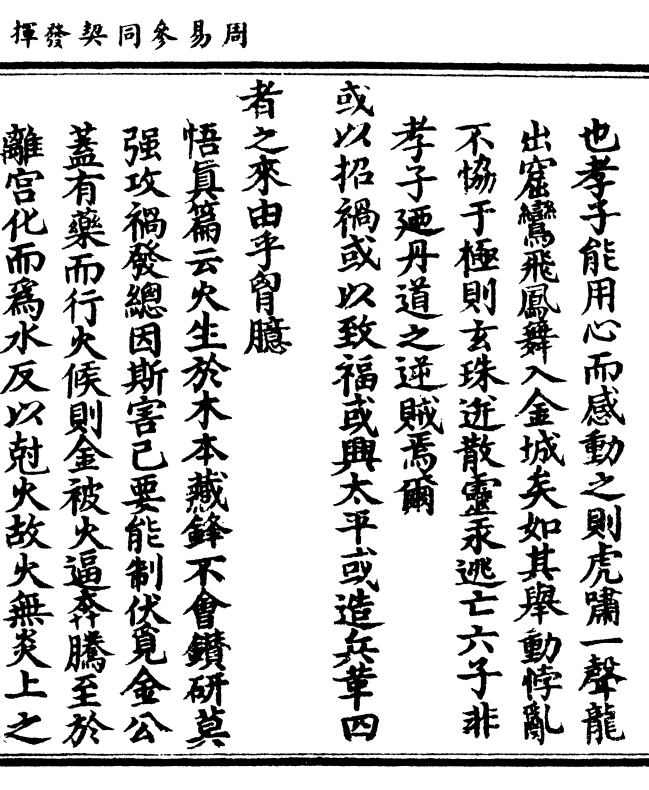 周易參同契發揮
也孝子能用心而感動之則虎嘯一聲龍
出窟鸞飛鳳舞入金城矣如其舉動悖亂
不恊于極則玄珠迸散靈汞逃亡六子非
孝子廼丹道之逆賊焉爾
或以招禍或以致福或興太平或造兵革四
者之來由乎胷臆
悟眞篇云火生於木本藏鋒不會鑽研莫
强攻禍發總因斯害己要能制伏覓金公
蓋有藥而行火候則金被火逼奔騰至於
離宮化而爲水反以尅火故火無炎上之